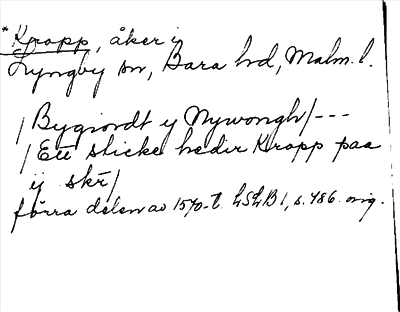 *Kropp, åker i
Lyngby sn, Bara hd, Malm. l.
/Bygiordt y Nywongh/---
/Ett sticke heder Kropp paa
ij skr/
förra delen av 1570-t. LSLB 1, s. 486. orig.